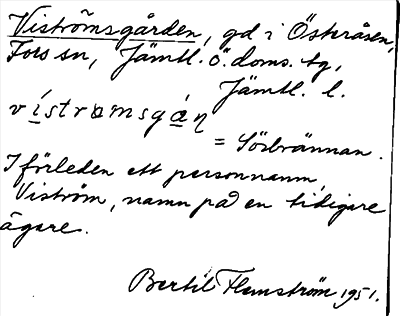 Viströmsgården, gd i Österåsen,
Fors sn, Jämtl. ö. doms. tg,
Jämtl. l.
vístrømsgán
= Sörbrännan.
I förleden ett personnamn,
Viström, namn på en tidigare
ägare.
Bertil Flemström 1951.